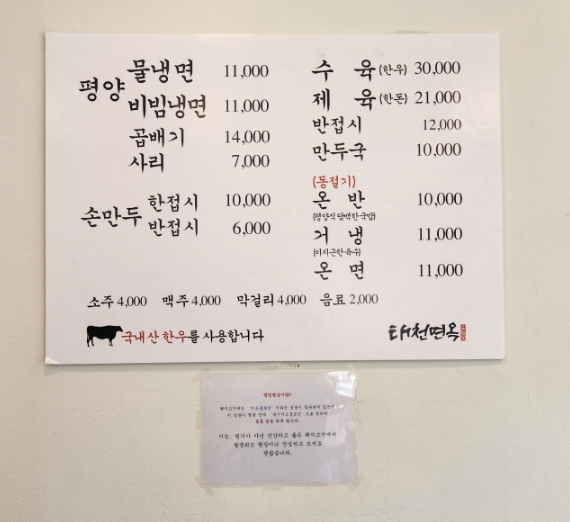 평양 물냉면 11,000
비빔냉면 11,000
곱배기 14,000
사리 7,000
손만두 한접시 10,000
반접시 6,000
수 육 (한우) 30,000
제 육 (한돈) 21,000
반접시 12,000
만두국 10,000
(동절기)
온 반 10,000
(평양식 담백한 국밥)
거 냉 11,000
(미지근한 육수)
온 면 11,000
소주 4,000 맥주 4,000 막걸리 4,000 음료 2,000
국내산 한우를 사용합니다
태천면옥